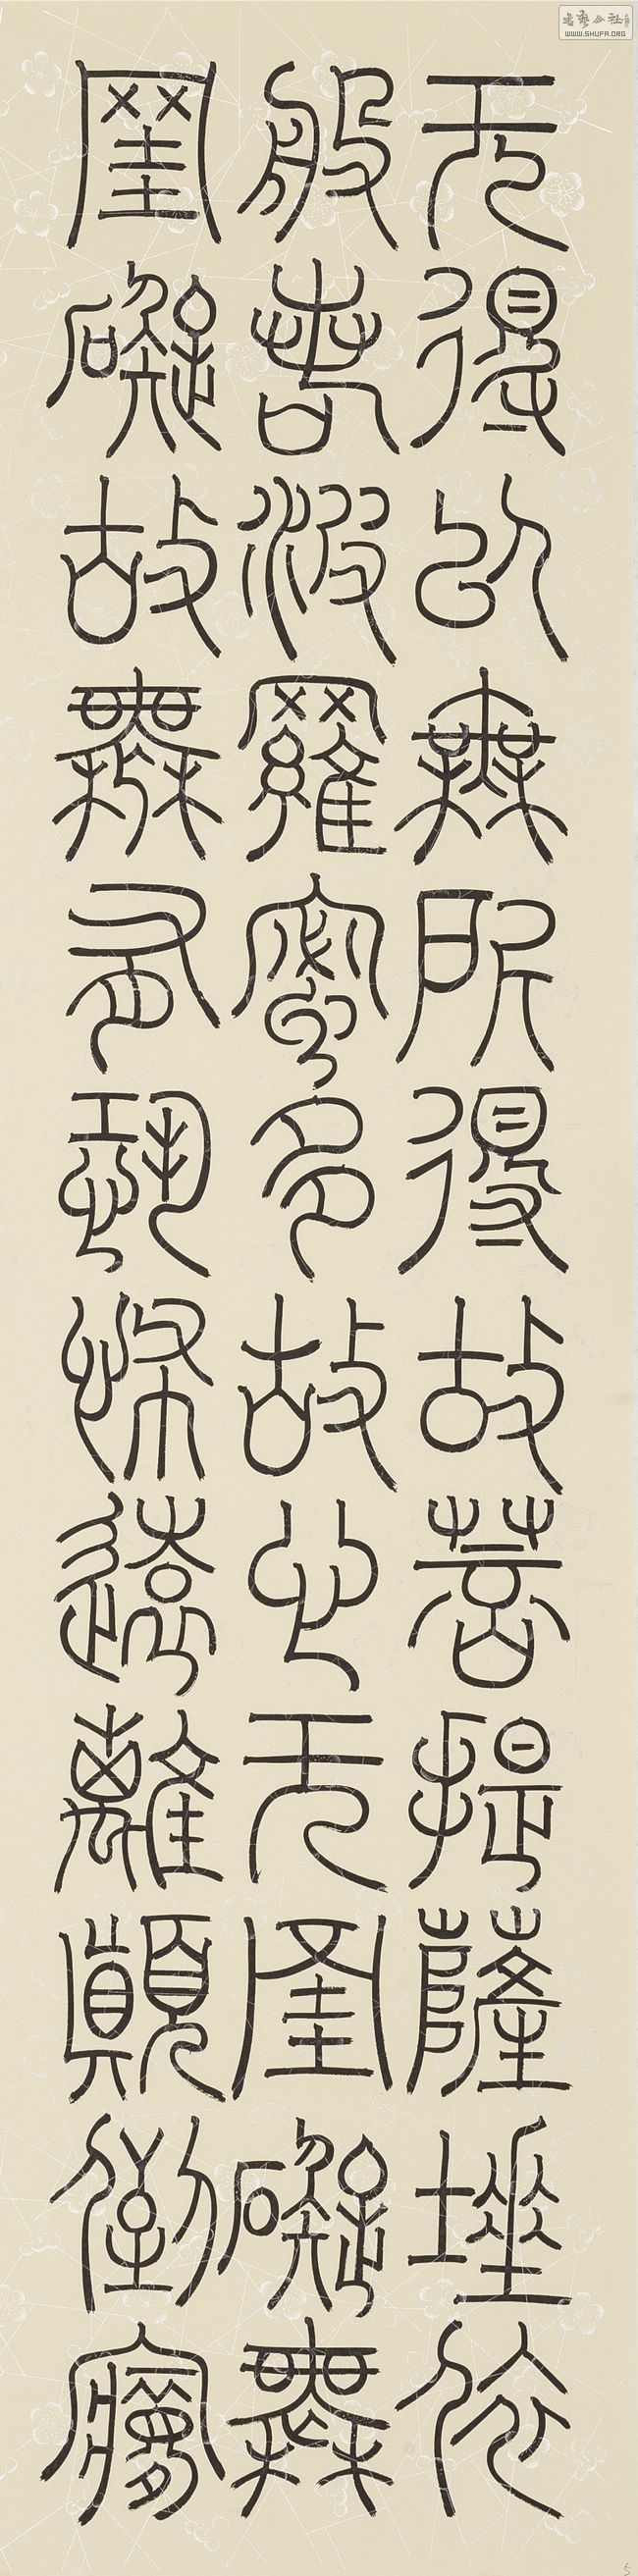 无得以無所得故菩提薩埵依
般若波羅蜜多故心无罣礙無
罣礙故無有恐怖遠離顛倒夢
WWW.SHUFA.ORG